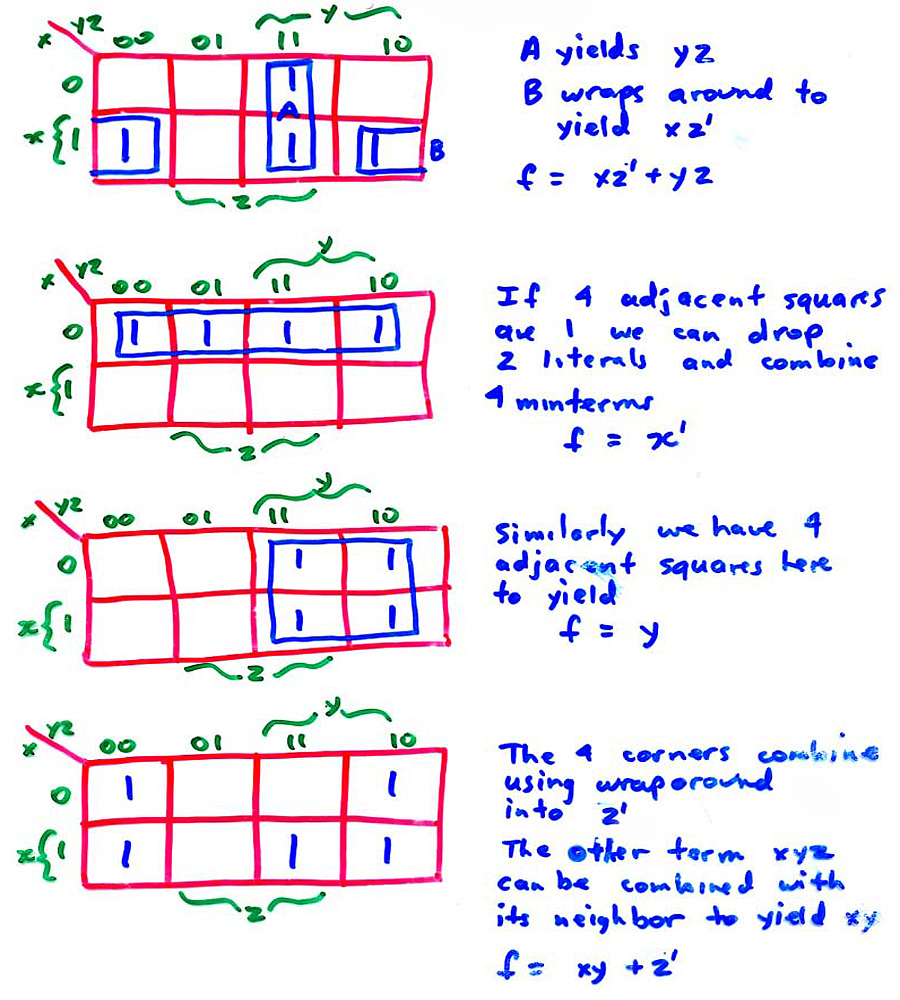 y
x yz 00 01 11 10
A yields yz
0 1
A
B wraps around to
yield xz'
x{1 1 1 1 B
f = xz' + yz
z
y
x yz 00 01 11 10
0 1 1 1 1
If 4 adjacent squares
are 1 we can drop
2 literals and combine
x{1
4 minterms
f = x'
z
y
x yz 00 01 11 10
0 1 1
Similarly we have 4
adjacent squares here
to yield
x{1 1 1
f = y
z
y
x yz 00 01 11 10
0 1 1
The 4 corners combine
using wraparound
into z'
x{1 1 1 1
The other term xyz
can be combined with
its neighbor to yield xy
z
f = xy + z'